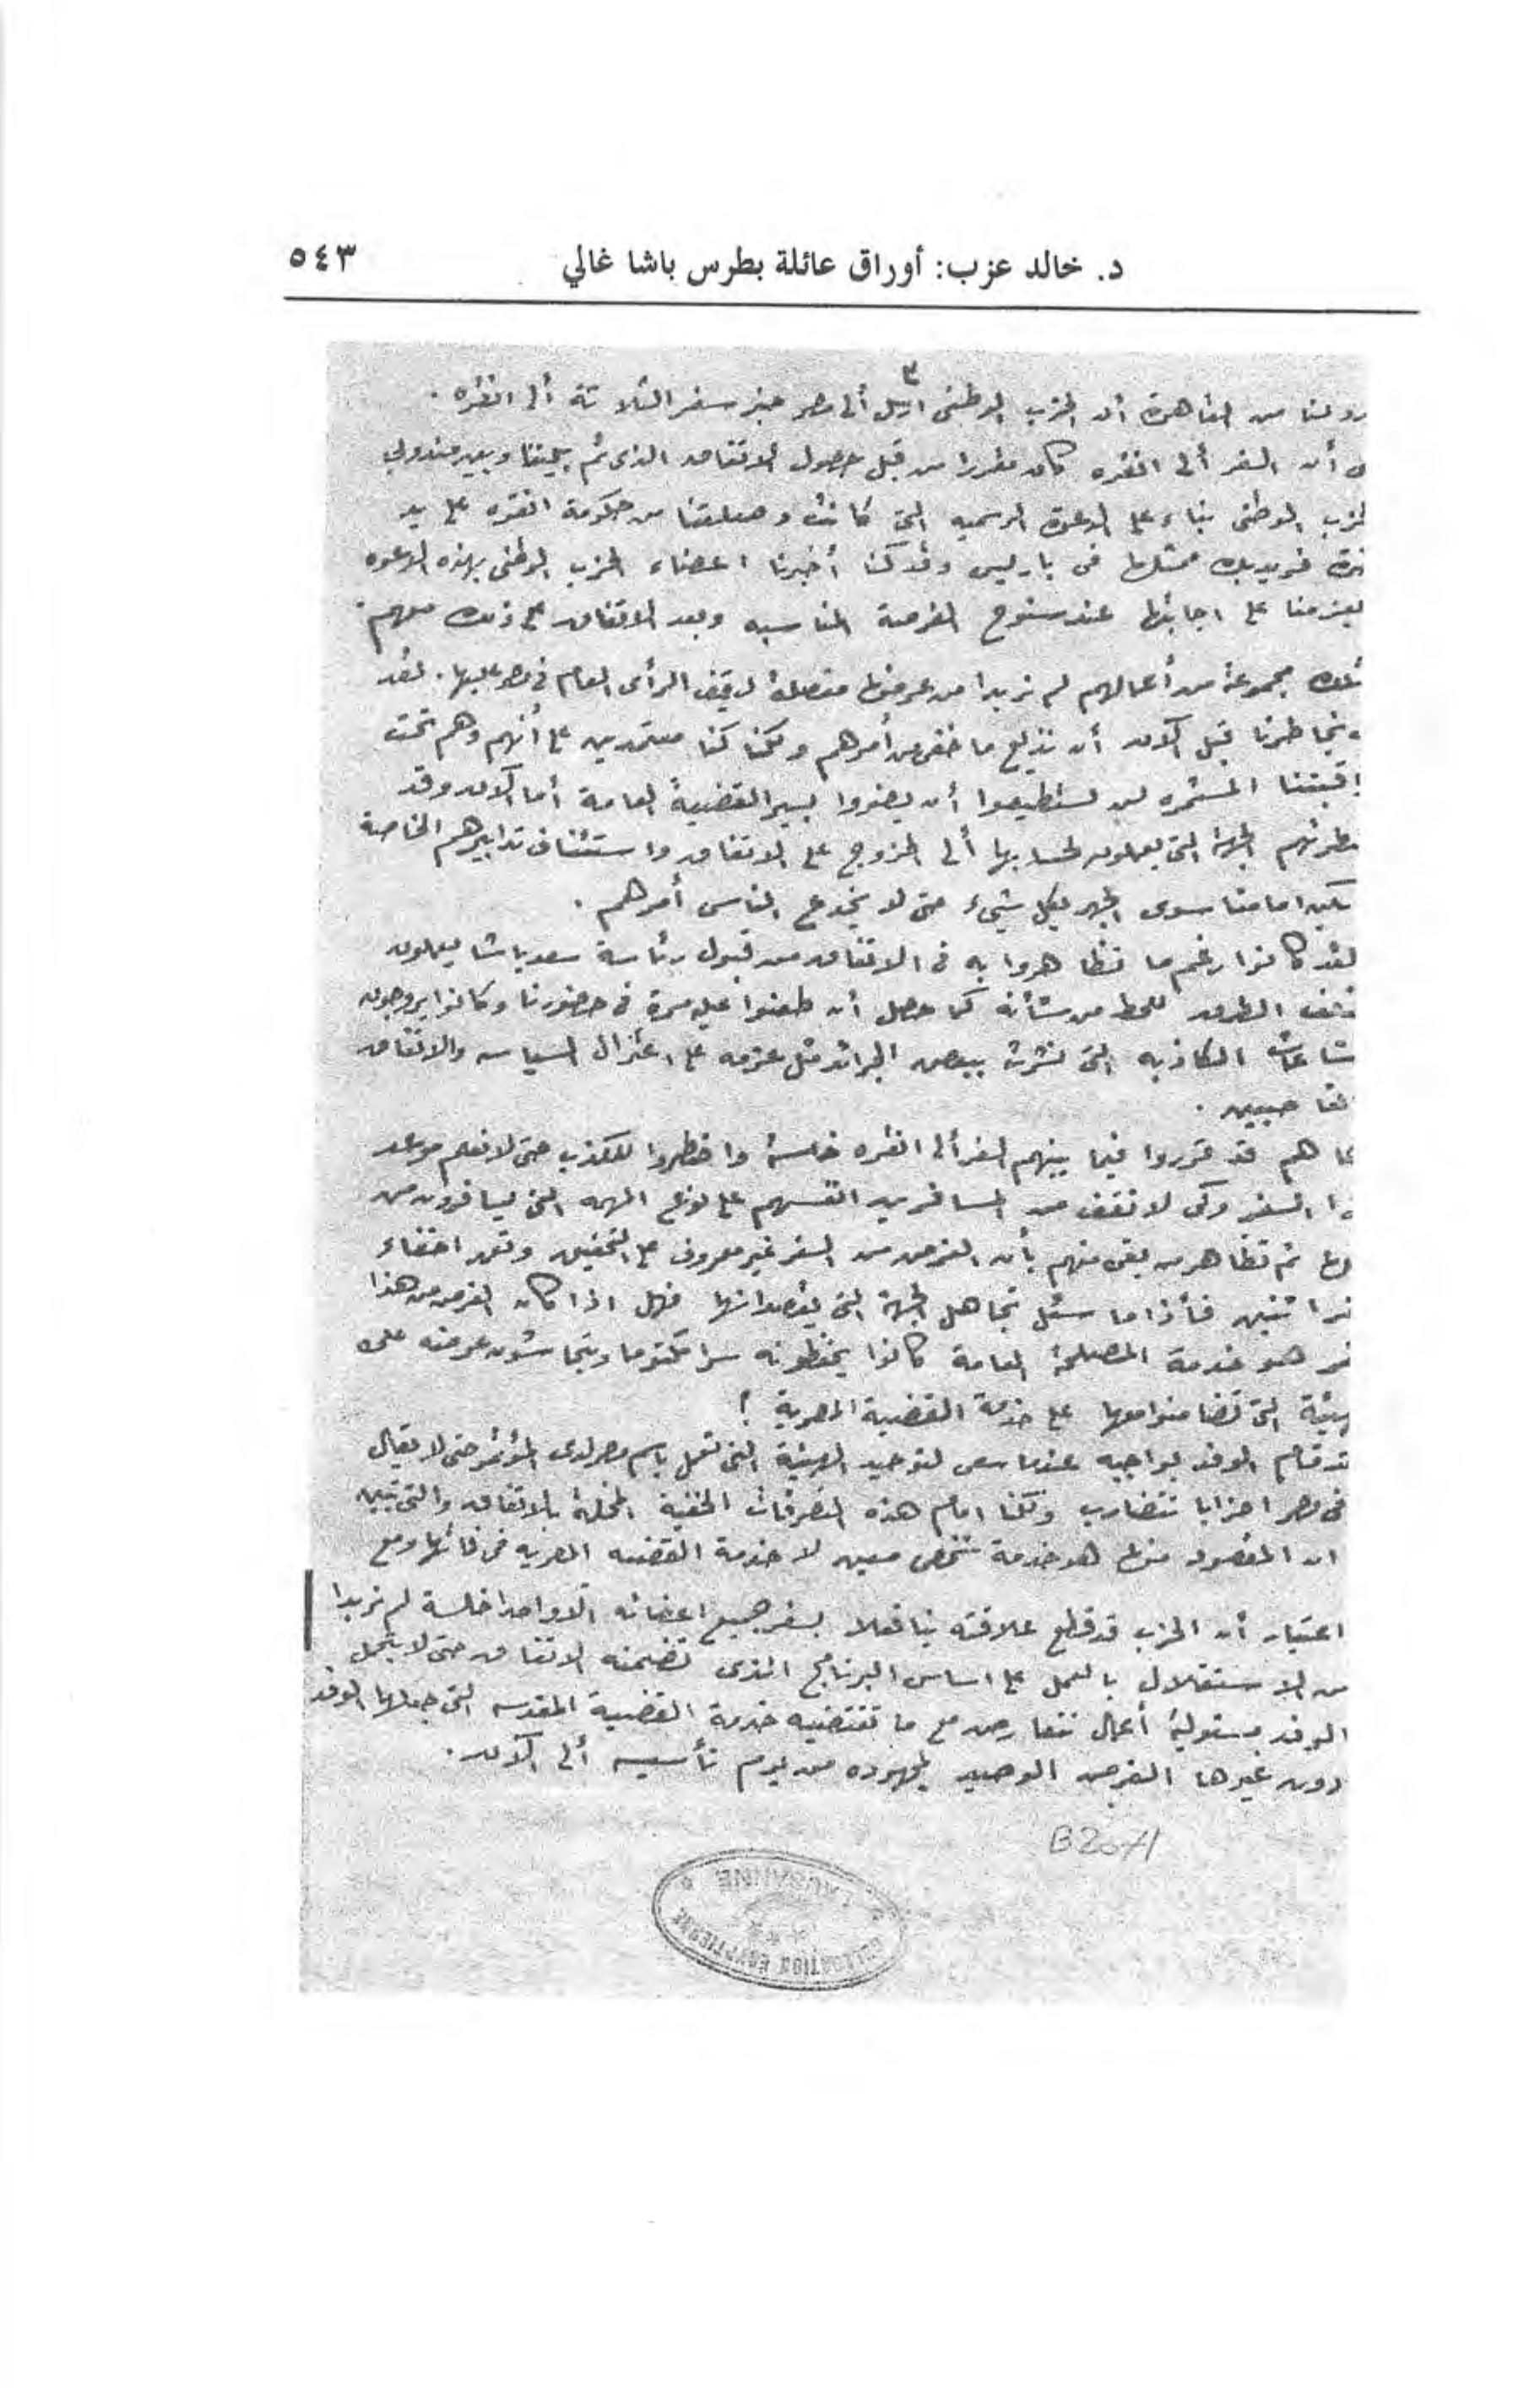 د. خالد عزب: أوراق عائلة بطرس باشا غالي ٥٤٣
٣
من القاهرة أن الحزب الوطنى ارسل ألى مصر خبر سفر الثلاثة ألى انقره .
أن السفر ألى انقره كان مقررا من قبل حصول الاتفاق الذى تم بيننا وبين مندوبي
الوطنى بناء على الدعوة الرسميه التى كانت وصلتنا من حكومة انقره على يد
فريد بك ممثلها فى باريس وقد كنا أخبرنا اعضاء الحزب الوطنى بهذه الدعوه
على اجابتها عند سنوح الفرصة المناسبه وبعد الاتفاق على ذلك معهم .
تلك مجموعة من أعمالهم لم نر بدا من عرضها مفصلة ليقف الرأى العام فى مصر عليها . لقد
قبل الآن أن نذيع ما خفى من أمرهم ولكنا كنا معتمدين على أنهم وهم تحت
المستمره لن يستطيعوا أن يضروا بسير القضية العامة أما الآن وقد
الجهة التى يعملون لحسابها ألى الخروج على الاتفاق واستئناف تدابيرهم الخاصة
امامنا سوى الجهر بكل شيء حتى لا يخدع الناس أمرهم .
لقد كانوا رغم ما تظاهروا به فى الاتفاق من قبول رئاسة سعد باشا يعملون
الطرق للحط من شأنه كما حصل أن طعنوا عليه مرة فى حضورنا وكانوا يروجون
الكاذبه التى نشرت ببعض الجرائد مثل عزمه على اعتزال السياسه والاتفاق
هم قد قرروا فيما بينهم السفر ألى انقره خلسة واضطروا للكذب حتى لا نعلم موعد
السفر ولكى لا نقف من المسافرين انفسهم على نوع المهمه التى يسافرون من
ثم تظاهر من بقى منهم بأن الغرض من السفر غير معروف على التحقيق وتعمد اختفاء
اثنين فأذا ما سئل تجاهل الجهة التى يقصدانها فهل اذا كان الغرض من هذا
هو خدمة المصلحة العامة كانوا يحفظونه سرا مكتوما ويتحاشون عرضه على
التى تضامنوا معها على خدمة القضية المصرية ؟
قام الوفد بواجبه عندما سعى لتوحيد الهيئة التى تعمل باسم مصر لدى المؤتمر حتى لا يقال
فى مصر احزابا تتضارب ولكنا امام هذه التصرفات الخفية المخلة بالاتفاق والتى تبين
ان المقصود منها هو خدمة شخص معين لا خدمة القضيه المصريه فى ذاتها ومع
اعتبار أن الحزب قد قطع علاقته بنا فعلا بسفر جميع اعضائه الا واحدا خلسة لم نر بدا
من الاستقلال بالعمل على اساس البرنامج الذى تضمنه الاتفاق حتى لا يتحمل
الوفد مسئولية أعمال تتعارض مع ما تقتضيه خدمة القضية المقدسه التى جعلها الوفد
دون غيرها الغرض الوحيد لمجهوده من يوم تأسيسه ألى الآن .
DELEGATION EGYPTIENNE
LAUSANNE